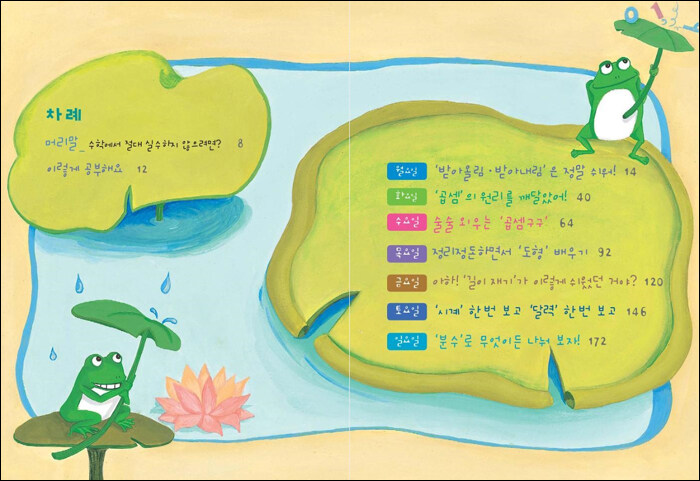 차례
머리말_ 수학에서 절대 실수하지 않으려면? 8
이렇게 공부해요 12
0 1
월요일 '받아올림·받아내림'은 정말 쉬워! 14
화요일 '곱셈'의 원리를 깨달았어! 40
수요일 술술 외우는 '곱셈구구' 64
목요일 정리정돈하면서 '도형' 배우기 92
금요일 아하! '길이 재기'가 이렇게 쉬웠던 거야? 120
토요일 '시계' 한번 보고 '달력' 한번 보고 146
일요일 '분수'로 무엇이든 나눠 보자! 172